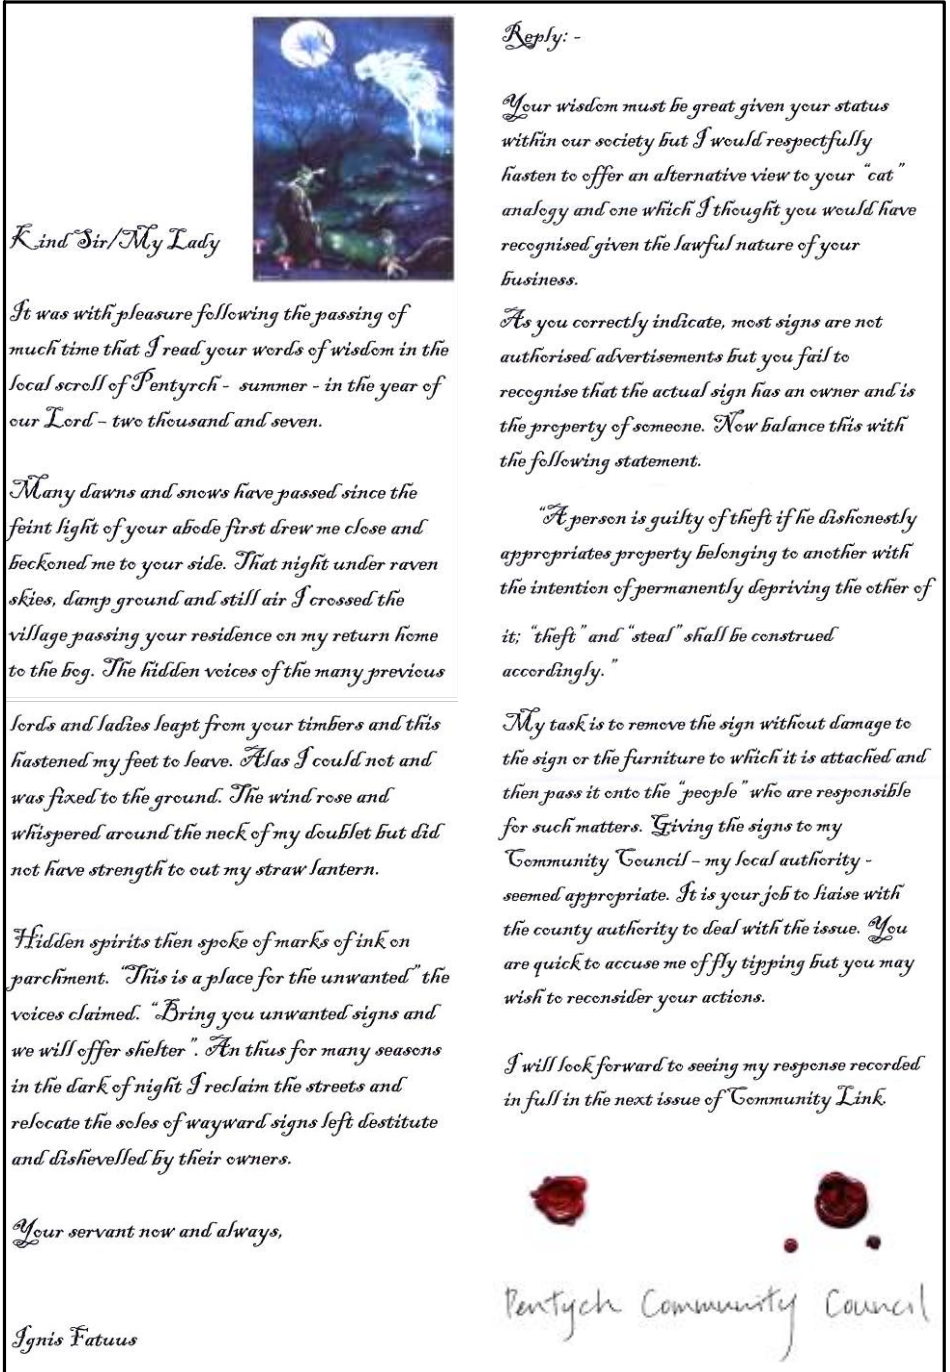 Kind Sir/My Lady
It was with pleasure following the passing of
much time that I read your words of wisdom in the
local scroll of Pentyrch - summer - in the year of
our Lord – two thousand and seven.
Many dawns and snows have passed since the
feint light of your abode first drew me close and
beckoned me to your side. That night under raven
skies, damp ground and still air I crossed the
village passing your residence on my return home
to the bog. The hidden voices of the many previous
lords and ladies leapt from your timbers and this
hastened my feet to leave. Alas I could not and
was fixed to the ground. The wind rose and
whispered around the neck of my doublet but did
not have strength to out my straw lantern.
Hidden spirits then spoke of marks of ink on
parchment. “This is a place for the unwanted” the
voices claimed. “Bring you unwanted signs and
we will offer shelter”. An thus for many seasons
in the dark of night I reclaim the streets and
relocate the soles of wayward signs left destitute
and dishevelled by their owners.
Your servant now and always,
Ignis Fatuus
Reply: -
Your wisdom must be great given your status
within our society but I would respectfully
hasten to offer an alternative view to your “cat”
analogy and one which I thought you would have
recognised given the lawful nature of your
business.
As you correctly indicate, most signs are not
authorised advertisements but you fail to
recognise that the actual sign has an owner and is
the property of someone. Now balance this with
the following statement.
“A person is guilty of theft if he dishonestly
appropriates property belonging to another with
the intention of permanently depriving the other of
it; “theft” and “steal” shall be construed
accordingly.”
My task is to remove the sign without damage to
the sign or the furniture to which it is attached and
then pass it onto the “people” who are responsible
for such matters. Giving the signs to my
Community Council – my local authority -
seemed appropriate. It is your job to liaise with
the county authority to deal with the issue. You
are quick to accuse me of fly tipping but you may
wish to reconsider your actions.
I will look forward to seeing my response recorded
in full in the next issue of Community Link.
Pentych Community Council